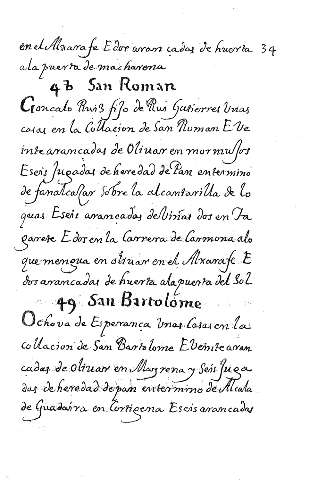 en el Alxarafe E dos aran cadas de huerta 34
ala puerta de macharena
48 San Roman
Goncalo Ruis fijo de Rui Gutierres Unas
casas en la Collacion de San Roman E Ve
inte arancadas de Oliuar en mormujos
E seis Jugadas de heredad de Pan en termino
de fanalcasar sobre la alcantarilla de lo
quas E seis arancadas de Viñas dos en Ta
garete E dos en la Carrera de Carmona a lo
que mengua en oliuar en el Alxarafe E
dos arancadas de huerta ala puerta del Sol
49 San Bartolome
Ochova de Esperança Unas Casas en la
collacion de San Bartolome E Veinte aran
cadas de Oliuar en Mayrena y Seis Juga
das de heredad de pan en termino de Alcala
de Guadaira en Cortigena E seis arancadas